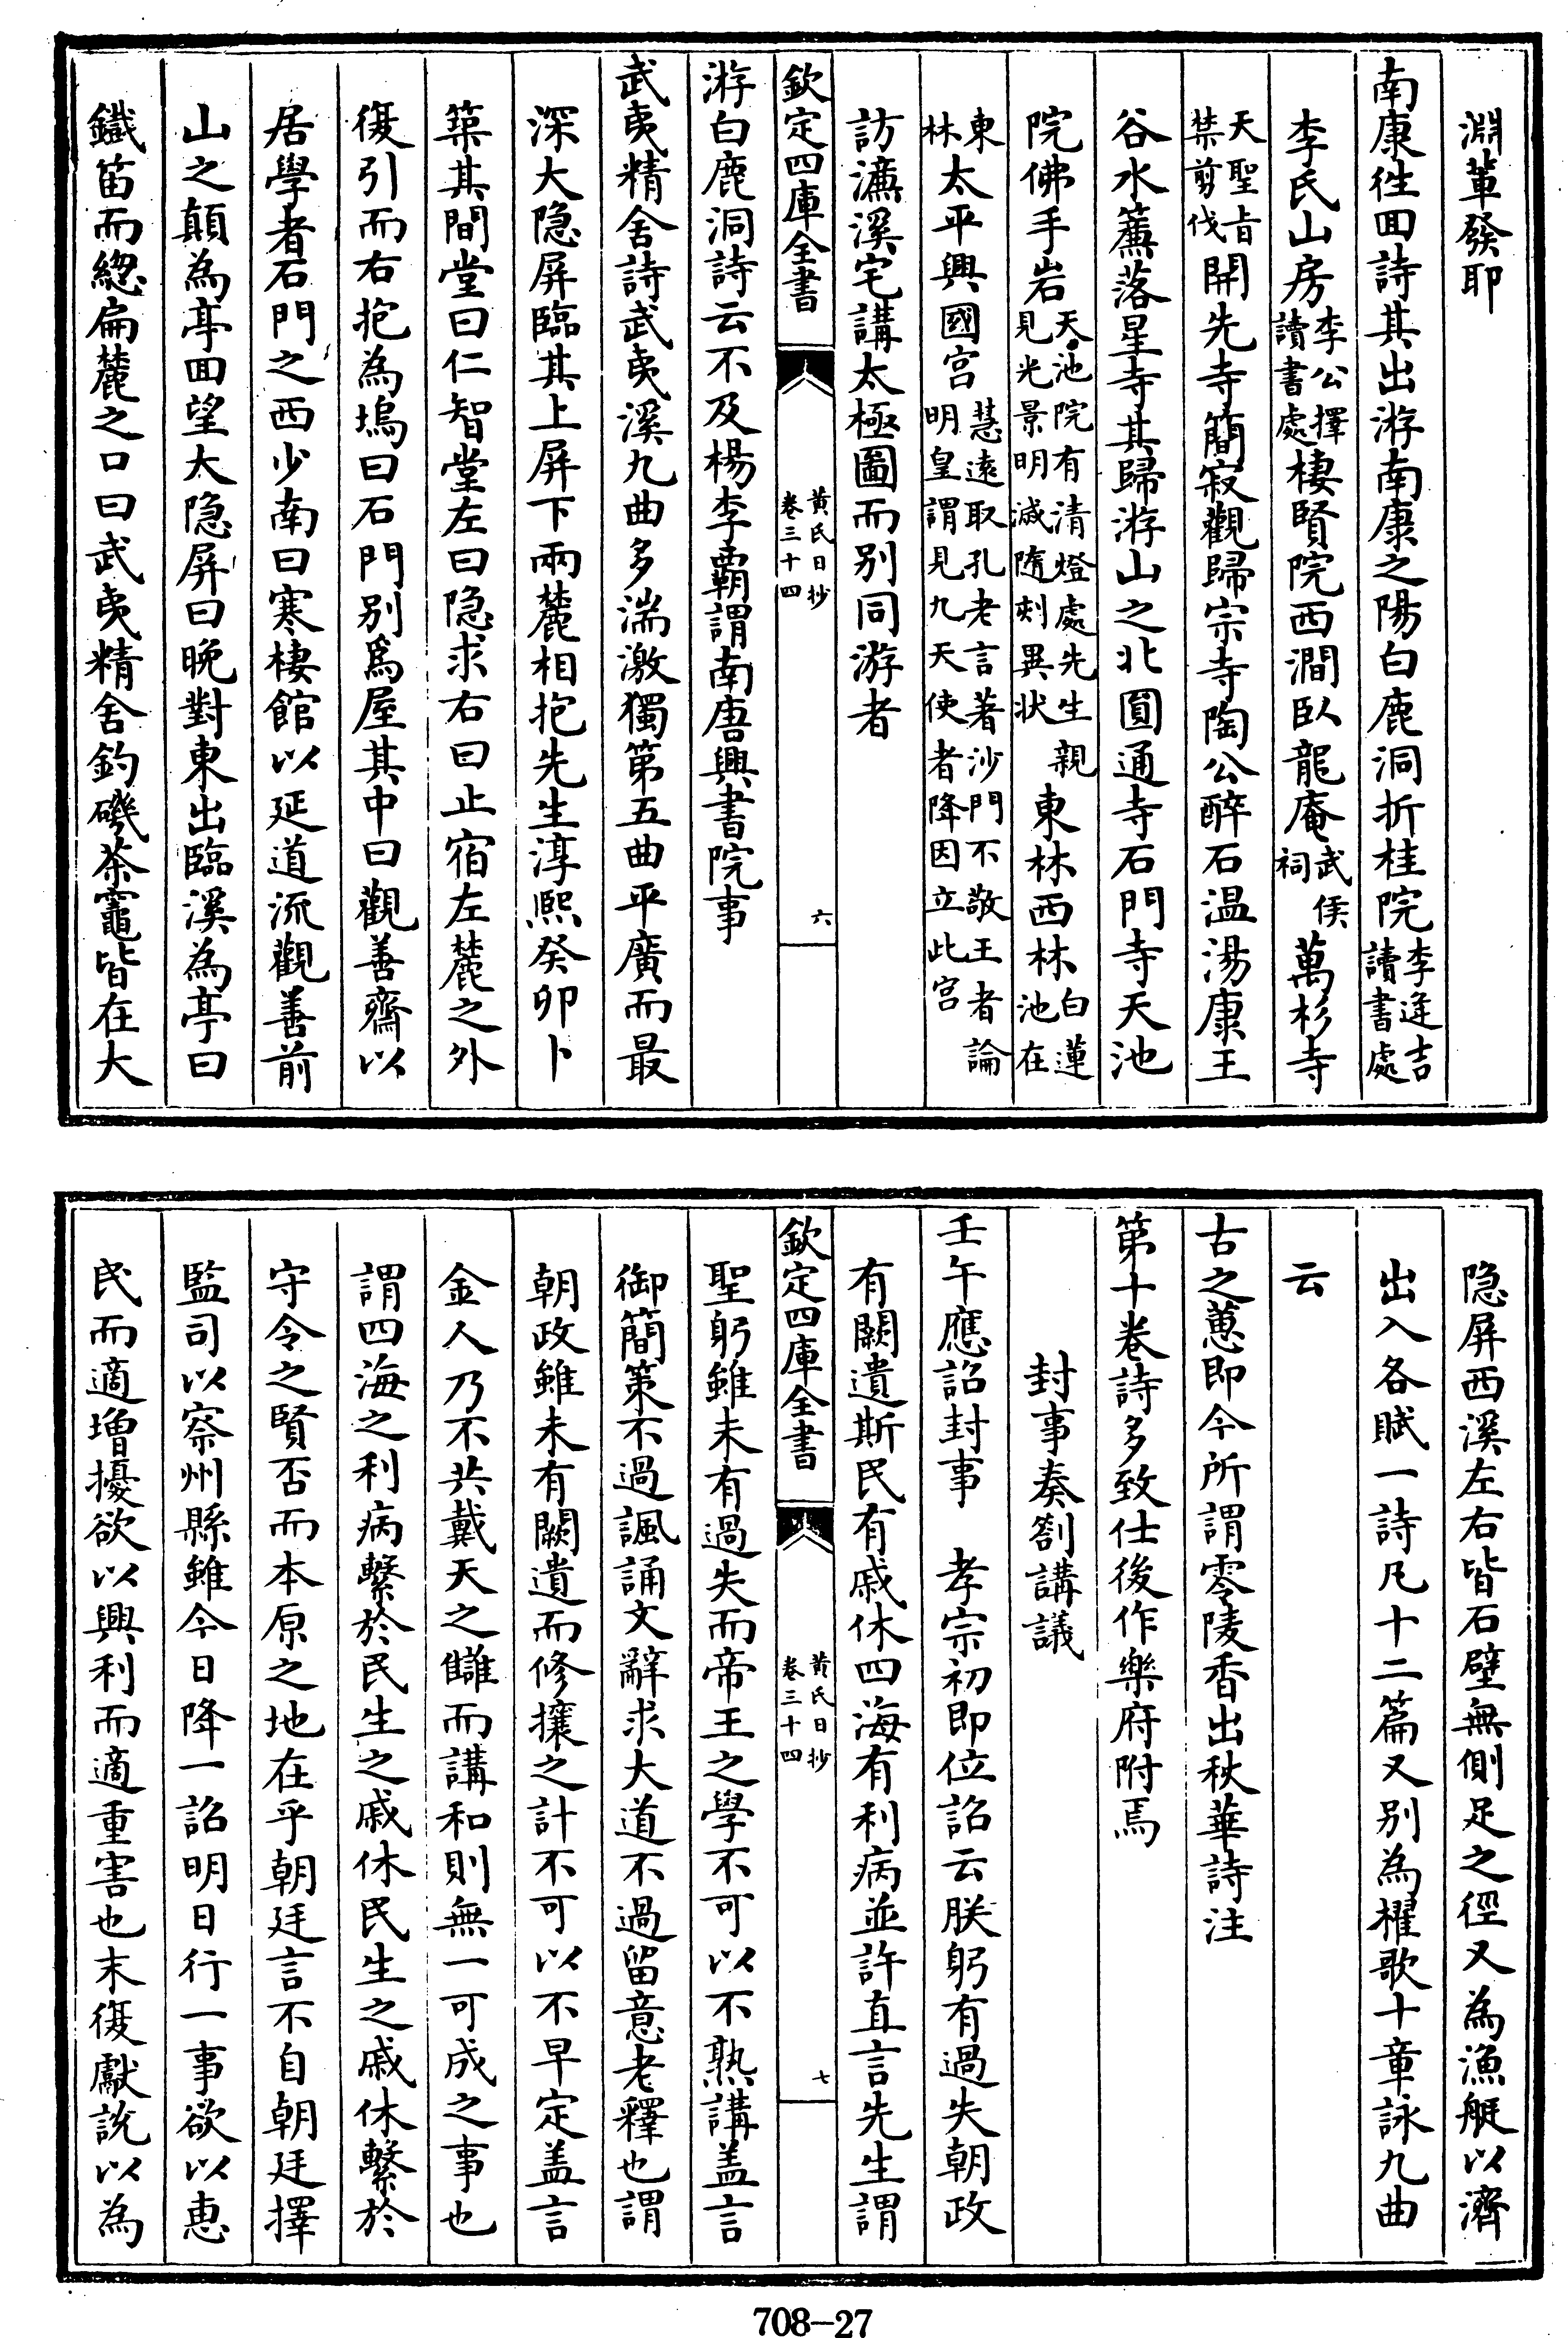 淵輩發耶
南康徃回詩其出游南康之陽白鹿洞折桂院李逢吉讀書處
李氏山房李公擇讀書處棲賢院西澗臥龍庵武侯祠萬杉寺
天聖旨禁剪伐開先寺簡寂觀歸宗寺陶公醉石温湯康王
谷水簾落星寺其歸游山之北圓通寺石門寺天池
院佛手岩天池院有清燈處先生親見光景明滅隨刻異狀東林西林白蓮池在
東林太平興國宫慧逺取孔老言著沙門不敬王者論明皇謂見九天使者降因立此宫
訪濂溪宅講太極圖而别同游者
欽定四庫全書
黄氏日抄
卷三十四
六
游白鹿洞詩云不及楊李霸謂南唐興書院事
武夷精舍詩武夷溪九曲多湍激獨第五曲平廣而最
深大隐屏臨其上屏下兩麓相抱先生淳熙癸卯卜
築其間堂曰仁智堂左曰隐求右曰止宿左麓之外
復引而右抱為塢曰石門别爲屋其中曰觀善齋以
居學者石門之西少南曰寒棲館以延道流觀善前
山之顛為亭回望大隐屏曰晩對東出臨溪為亭曰
鐵笛而緫扁麓之口曰武夷精舍釣磯茶竈皆在大
隐屏西溪左右皆石壁無側足之徑又為漁艇以濟
出入各賦一詩凡十二篇又别為櫂歌十章詠九曲
云
古之蕙即今所謂零陵香出秋華詩注
第十卷詩多致仕後作樂府附焉
封事奏劄講議
壬午應詔封事 孝宗初即位詔云朕躬有過失朝政
有闕遺斯民有戚休四海有利病並許直言先生謂
欽定四庫全書
黄氏日抄
卷三十四
七
聖躬雖未有過失而帝王之學不可以不熟講盖言
御簡策不過諷誦文辭求大道不過留意老釋也謂
朝政雖未有闕遺而修攘之計不可以不早定盖言
金人乃不共戴天之讎而講和則無一可成之事也
謂四海之利病繫於民生之戚休民生之戚休繫於
守令之賢否而本原之地在乎朝廷言不自朝廷擇
監司以察州縣雖今日降一詔明日行一事欲以恵
民而適增擾欲以興利而適重害也末復獻說以為
708-27